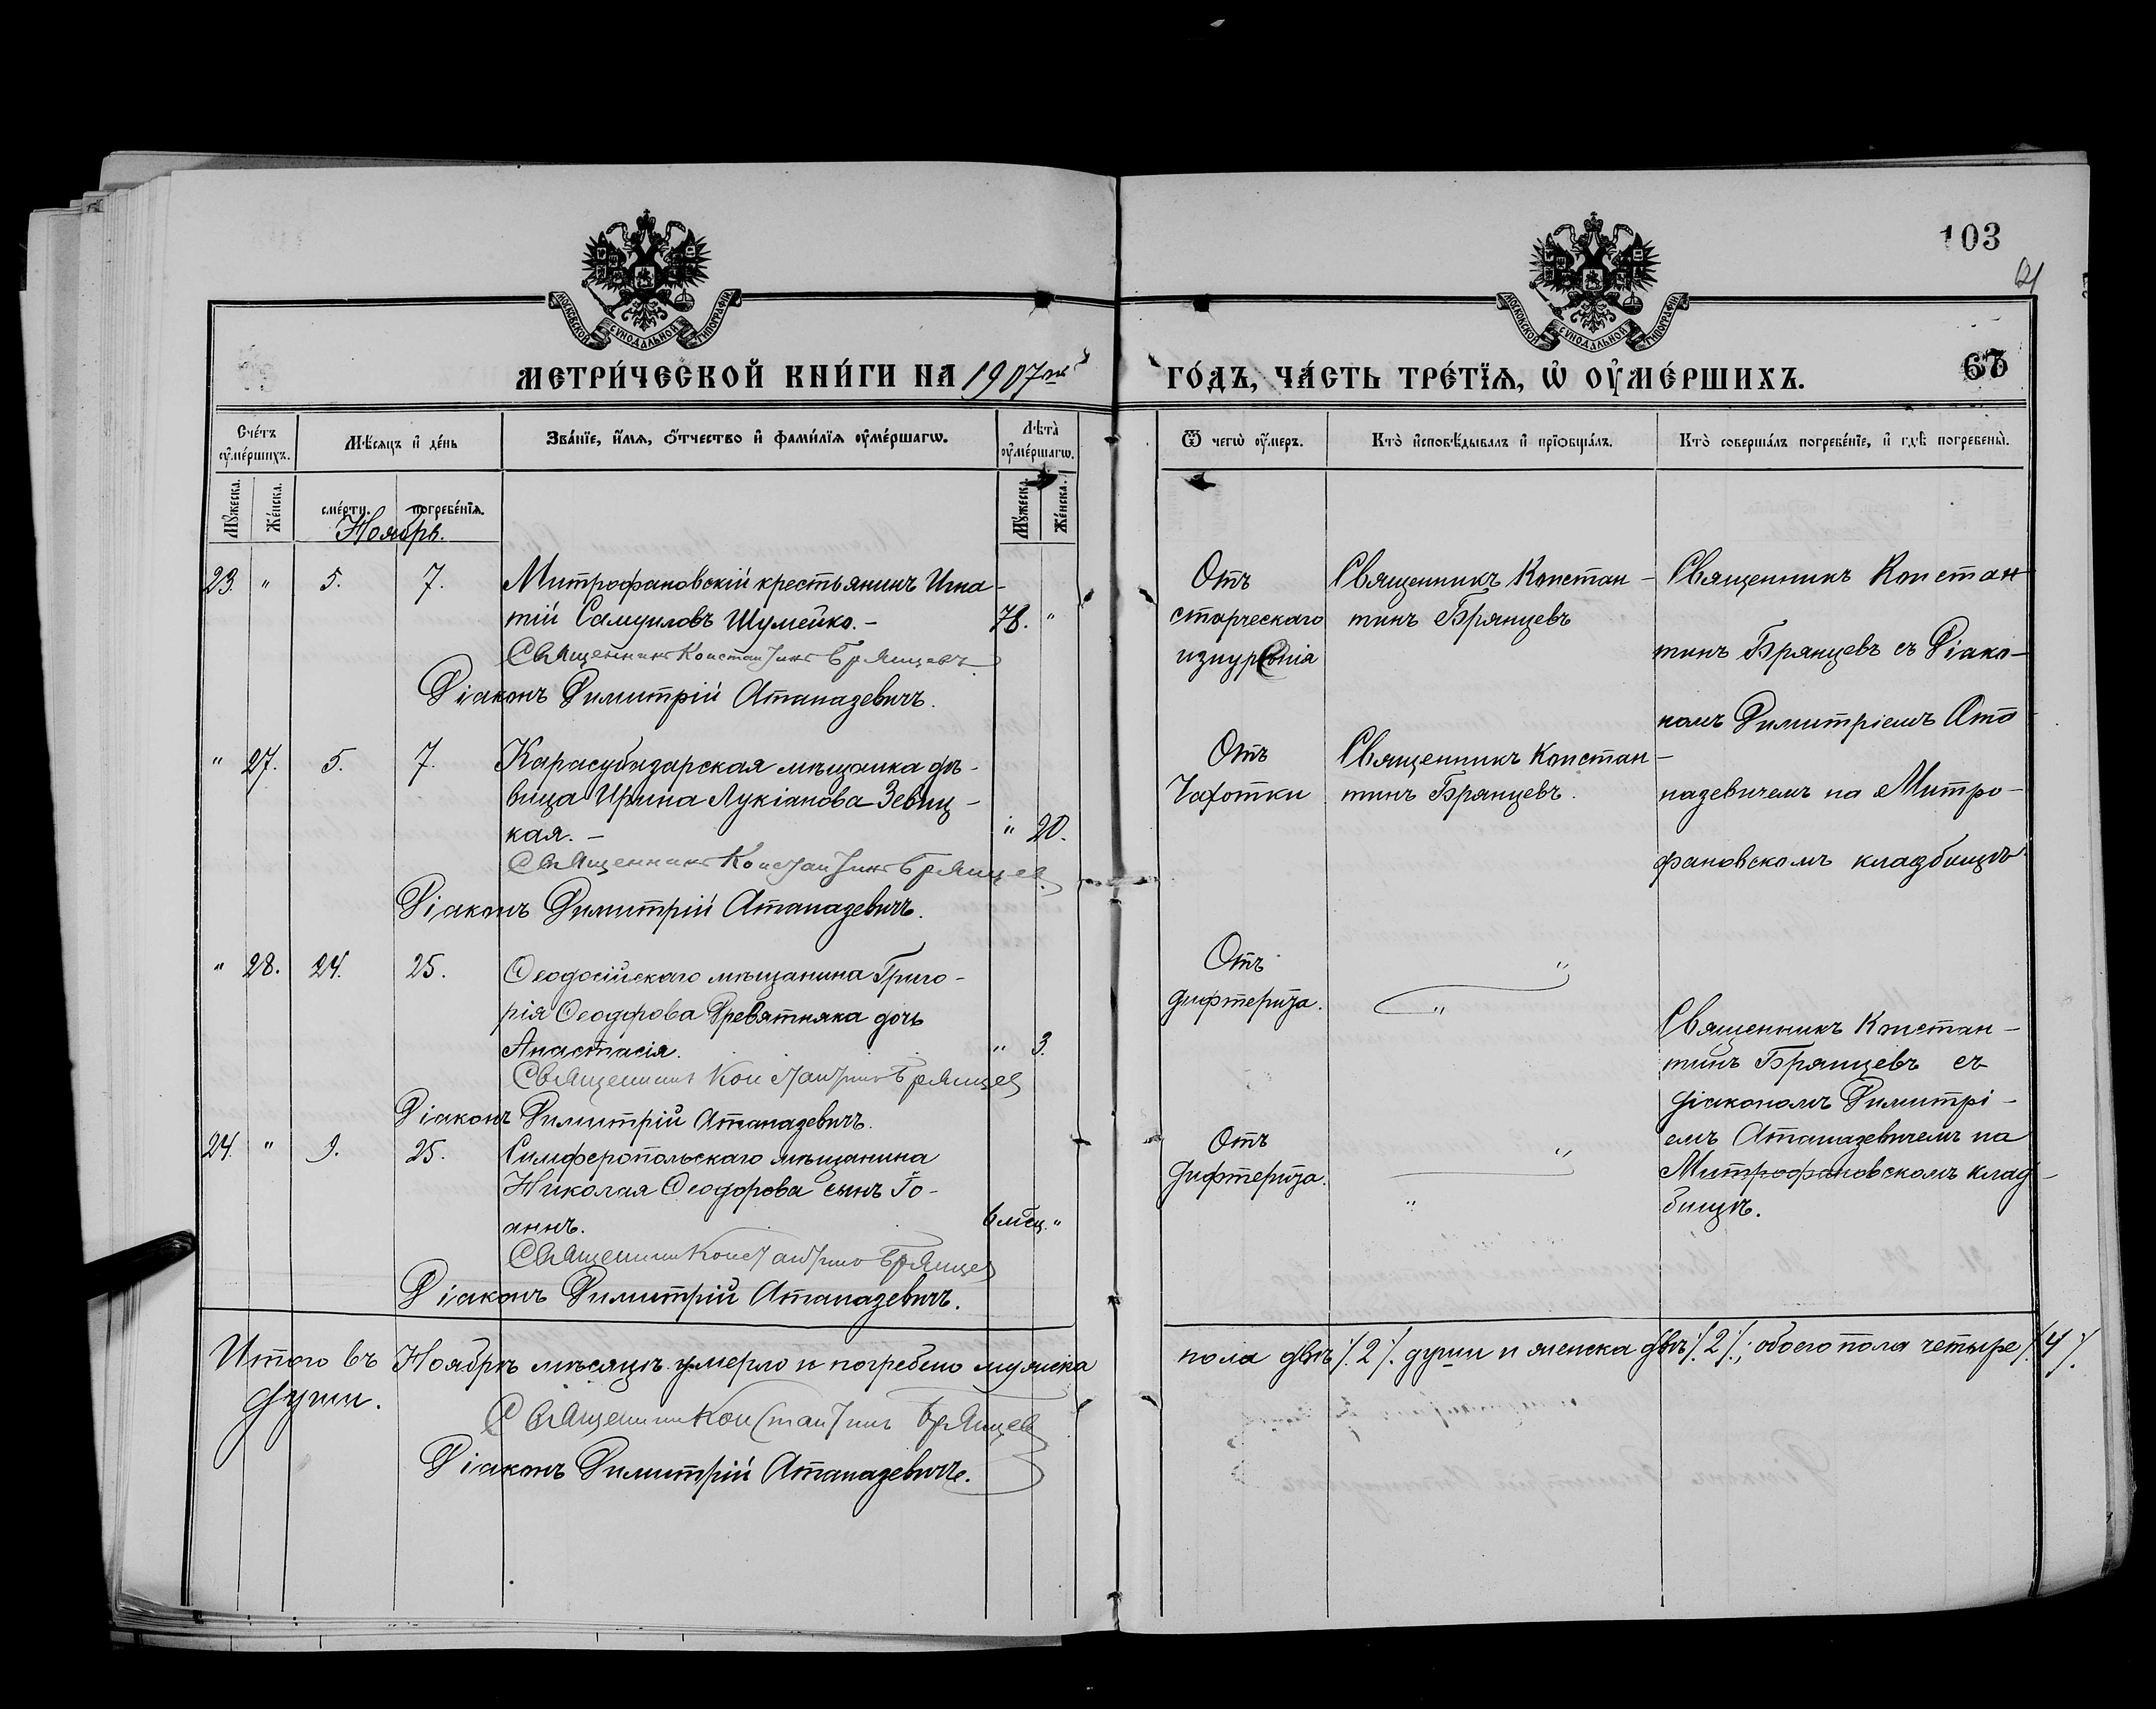 103
МОСКОВСКОЙ СУНОДАЛЬНОЙ ТИПОГРАФІИ
МОСКОВСКОЙ СУНОДАЛЬНОЙ ТИПОГРАФІИ
МЕТРИ́ЧЕСКОЙ КНИ́ГИ НА 1907 ГО́ДЪ, ЧА́СТЬ ТРЕ́ТЇѦ, Ѡ҆ ОУ҆МЕ́РШИХЪ.
Сче́тъ оу҆ме́ршихъ.
Мѣ́сяцъ и҆ де́нь
Зва́нїе, и҆́мя, ѻ҆́тчество и҆ фами́лїя оу҆ме́ршагѡ.
Лѣ̀та̀ оу҆ме́ршагѡ.
Ѿ чегѡ̀ оу҆́меръ.
Кто̀ и҆сповѣ́дывалъ и҆ прїѻбща́лъ.
Кто̀ соверша́лъ погребе́нїе, и҆ гдѣ̀ погребены̀.
Мꙋ́жеска. Же́нска. сме́рти. погребе́нїя. Мꙋ́жеска. Же́нска.
Ноябрь.
23. " 5. 7. Митрофановскій крестьянинъ Игна-
тій Самуиловъ Шумейко. - 78. "
Священникъ Константинъ Брянцевъ
Діаконъ Димитрій Атаназевичъ.
Отъ
старческаго
изнуренія
Священникъ Констан-
тинъ Брянцевъ
Священникъ Констан
тинъ Брянцевъ съ Діако-
номъ Димитріемъ Ата
назевичемъ на Митро-
фановскомъ кладбищѣ
" 27. 5. 7. Карасубазарская мѣщанка дѣ-
вица Ирина Лукіанова Зевиц-
кая. - " 20.
Священникъ Константинъ Брянцев
Діаконъ Димитрій Атаназевичъ.
Отъ
Чахотки
Священникъ Констан-
тинъ Брянцевъ.
" 28. 24. 25. Ѳеодосійскаго мѣщанина Григо-
рія Ѳеодорова Древятняка дочь
Анастасія. " 3.
Священникъ Константинъ Брянцев
Діаконъ Димитрій Атаназевичъ.
Отъ
дифтерита.
"
"
Священникъ Констан-
тинъ Брянцевъ съ
діакономъ Димитрі-
емъ Атаназевичемъ на
Митрофановскомъ клад-
бищѣ.
24. " 9. 25. Симферопольскаго мѣщанина
Николая Ѳеодорова сынъ Іо-
аннъ. 6 мѣц. "
Священникъ Константинъ Брянцев
Діаконъ Димитрій Атаназевичъ.
Отъ
дифтерита.
"
"
Итого въ Ноябрѣ мѣсяцѣ умерло и погребено мужска пола двѣ /. 2 /. души и женска двѣ /. 2 /.; обоего пола четыре /. 4 /.
души.
Священникъ Константинъ Брянцев
Діаконъ Димитрій Атаназевичъ.